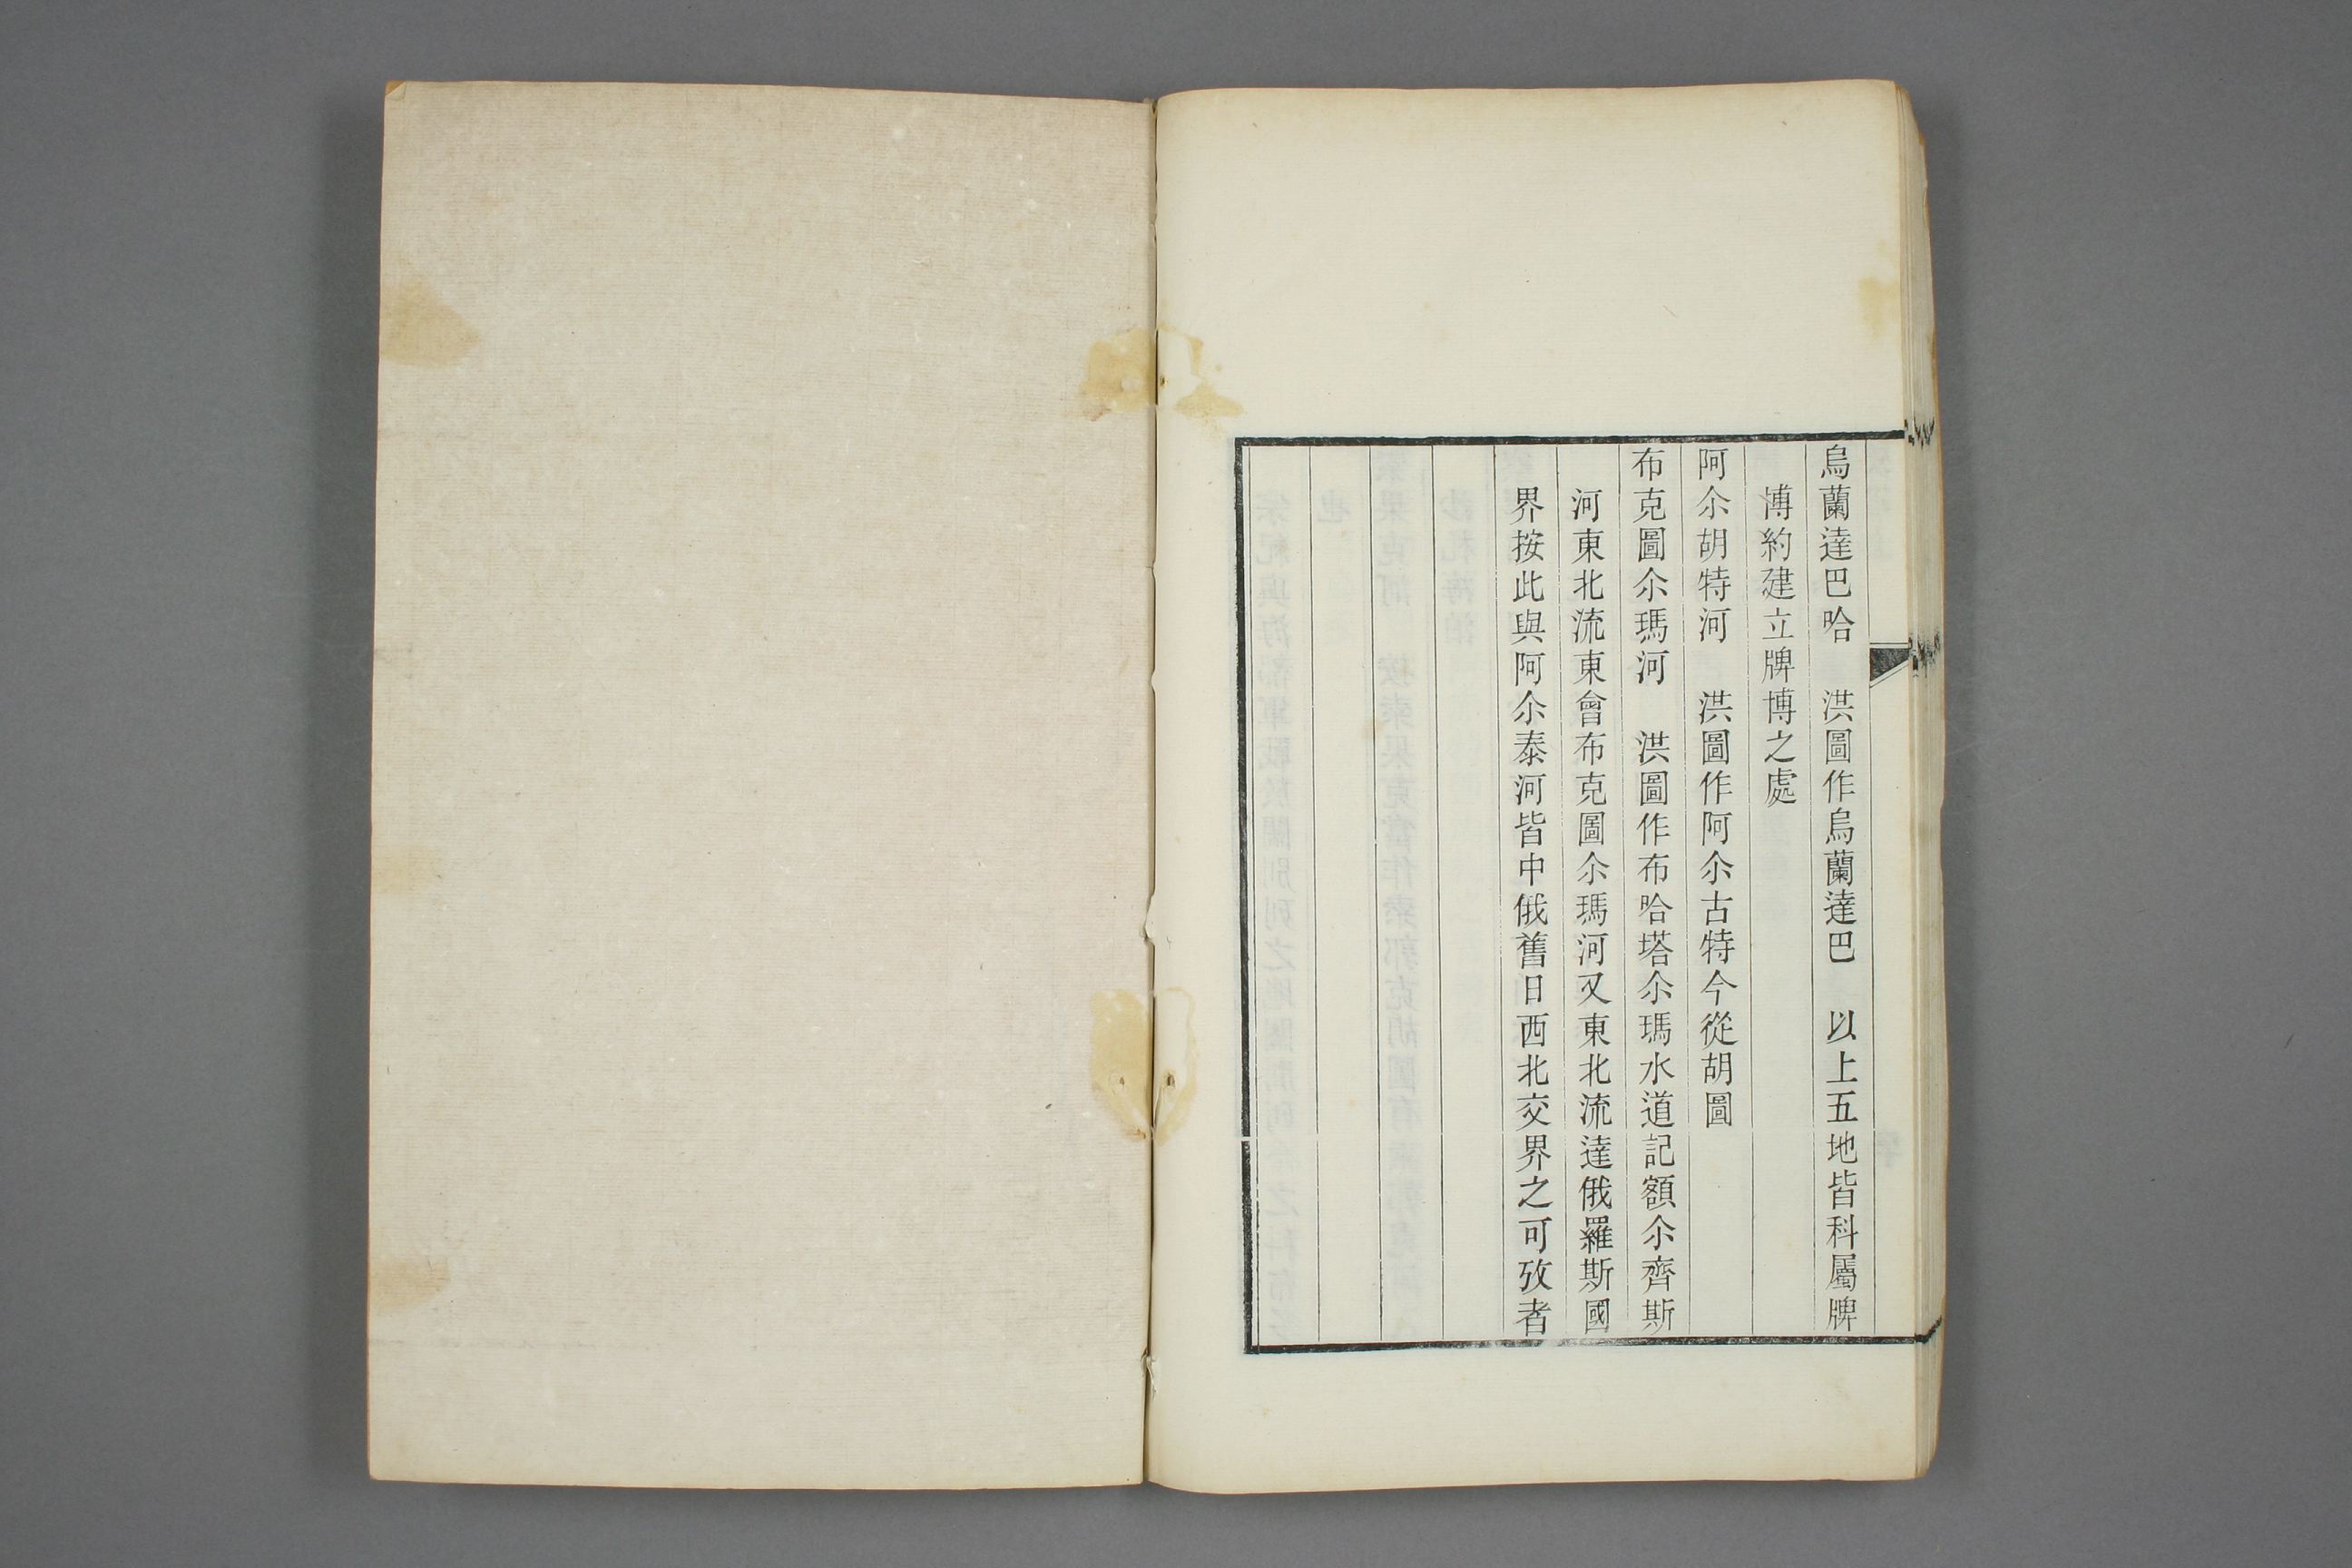 烏蘭達巴哈　洪圖作烏蘭達巴　以上五地皆科屬牌
博約建立牌博之處
阿尒胡特河　洪圖作阿尒古特今從胡圖
布克圖尒瑪河　洪圖作布哈塔尒瑪水道記額尒齊斯
河東北流東會布克圖尒瑪河又東北流達俄羅斯國
界按此與阿尒泰河皆中俄舊日西北交界之可攷者